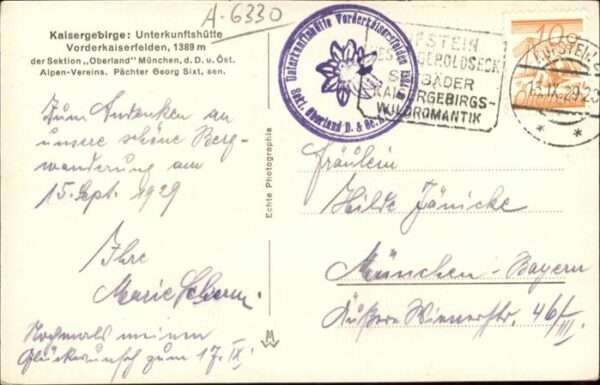 A-6330
Kaisergebirge: Unterkunftshütte
Vorderkaiserfelden, 1389 m
der Sektion „Oberland" München, d. D. u. Öst.
Alpen-Vereins. Pächter Georg Sixt, sen.
Zum Andenken an
unsere schöne Berg-
wanderung am
15. Sept. 1929
Ihre
Marie
Nochmals meinen
Glückwunsch zum 17. IX.
Echte Photographie
Unterkunftshütte Vorderkaiserfelden
Sekt. Oberland D. & Oe.
KUFSTEIN
GEROLDSECK
KAISERGEBIRGS-
WILDROMANTIK
10
KUFSTEIN
15.IX.29
Fräulein
Hilde Jänicke
München - Bayern
Äußere Wienerstr. 46/III.